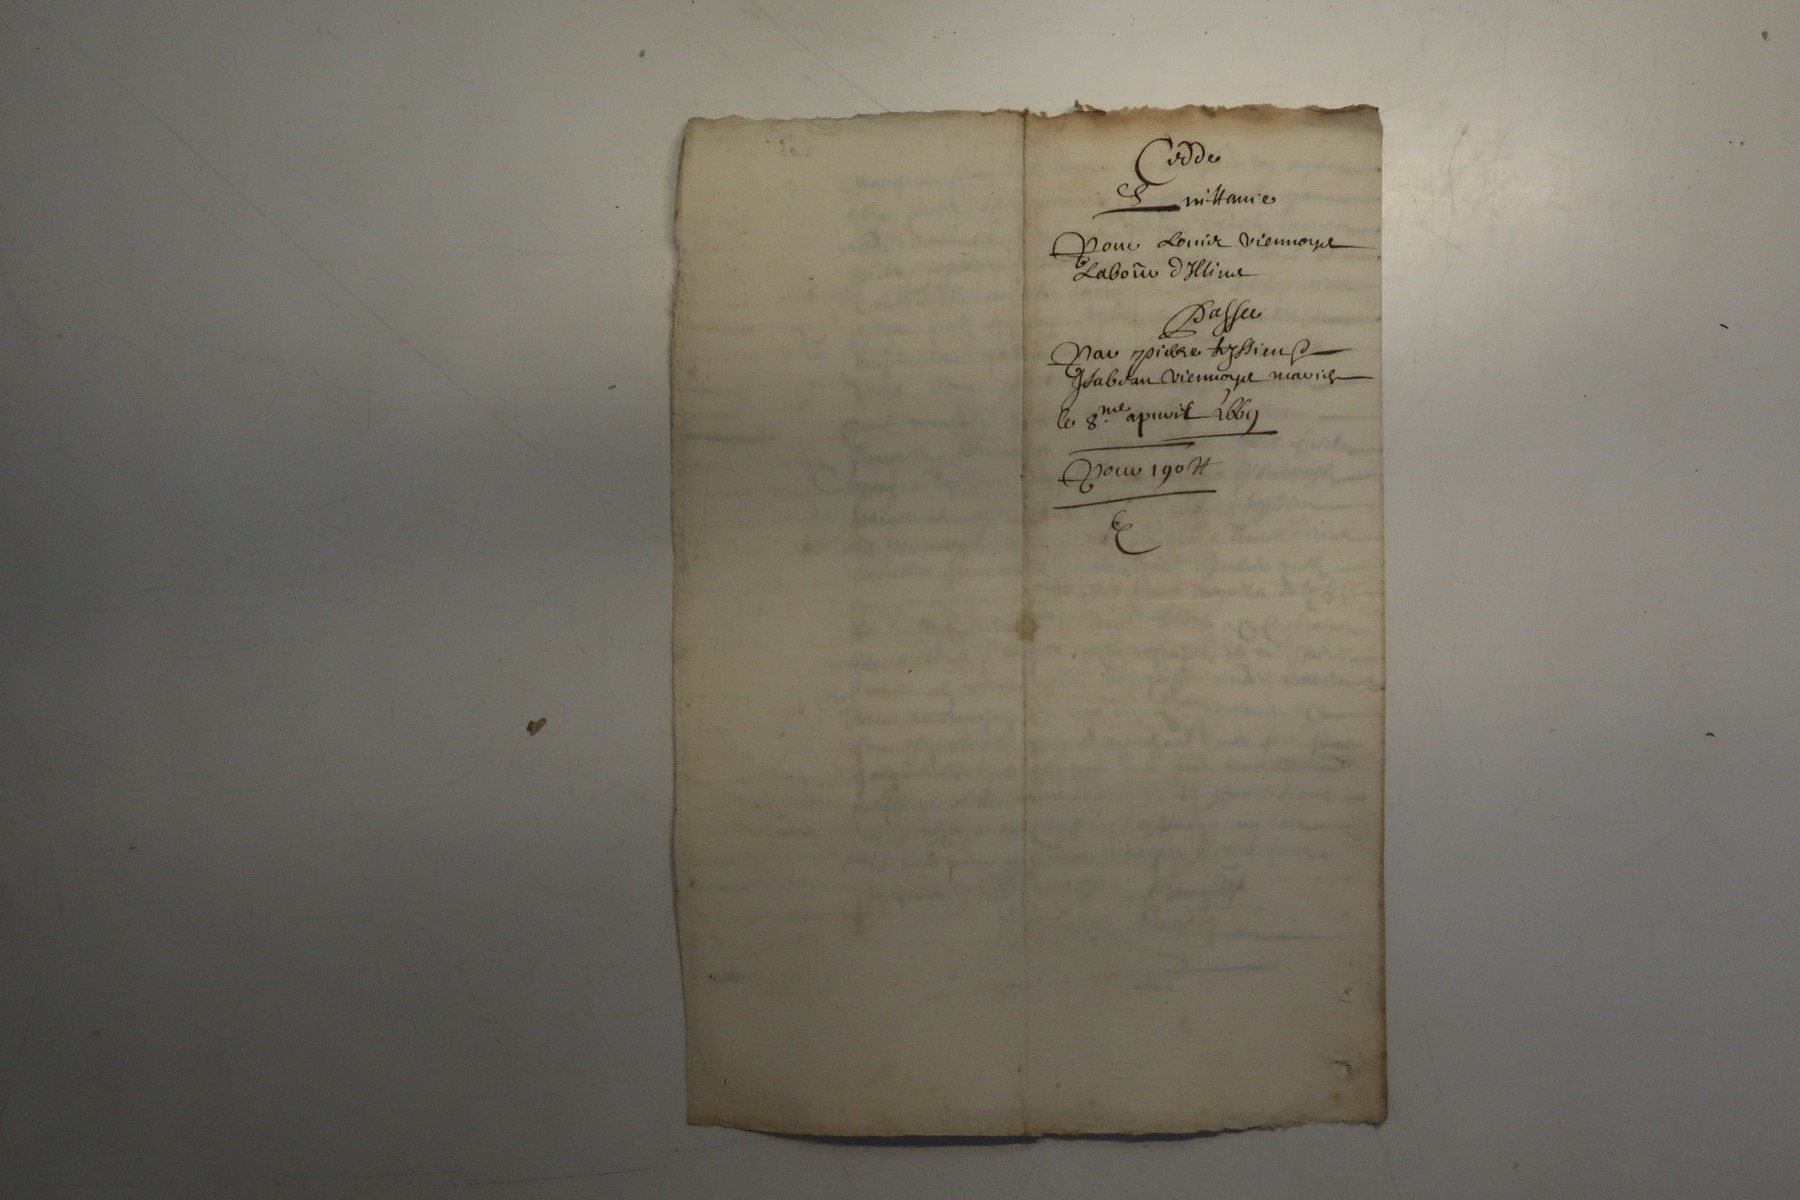 Cedde
Quittance
Pour Louis Viennoys
Laboũr d'Illins
Passee
Par pierre
Isabeau Viennoys maries
le 8me apvril 1669
Pour 190 tt